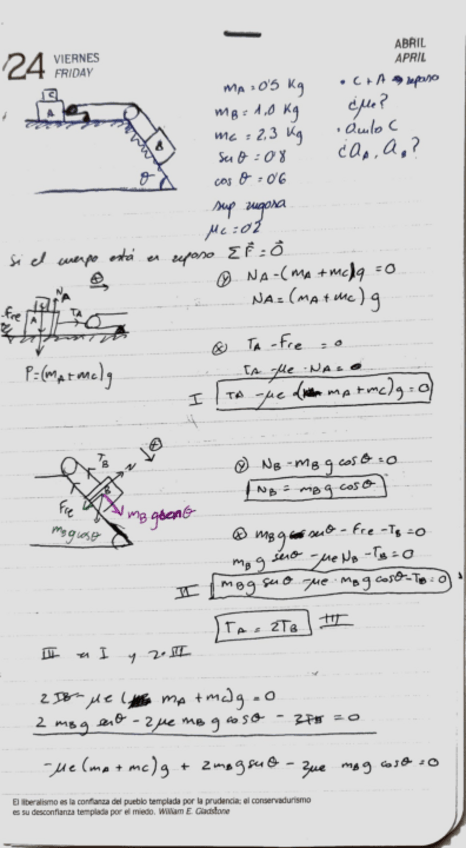 24 VIERNES FRIDAY
ABRIL
APRIL
m_A = 0'5 Kg
m_B = 1,0 Kg
m_C = 2,3 Kg
sen θ = 0'8
cos θ = 0'6
sup rugosa
μ_C = 0'2
• C + A → reposo
¿μ_e?
• quito C
¿a_A, a_B?
C
A
B
θ
Si el cuerpo está en reposo Σ F⃗ = 0⃗
⊕
N_A
T_A
Fre
C
A
P = (m_A + m_C) g
Ⓨ N_A - (m_A + m_C) g = 0
N_A = (m_A + m_C) g
Ⓧ T_A - Fre = 0
T_A - μe · N_A = 0
I T_A - μe (m_A + m_C) g = 0
T_B
N
⊕
B
Fre
m_B g cos θ
m_B g sen θ
Ⓨ N_B - m_B g cos θ = 0
N_B = m_B g cos θ
Ⓧ m_B g sen θ - Fre - T_B = 0
m_B g sen θ - μe N_B - T_B = 0
II m_B g sen θ - μe · m_B g cos θ - T_B = 0
T_A = 2T_B III
III en I y 2·II
2T_B - μe (m_A + m_C) g = 0
2 m_B g sen θ - 2μe m_B g cos θ - 2T_B = 0
-μe (m_A + m_C) g + 2 m_B g sen θ - 2μe m_B g cos θ = 0
El liberalismo es la confianza del pueblo templada por la prudencia; el conservadurismo
es su desconfianza templada por el miedo. William E. Gladstone